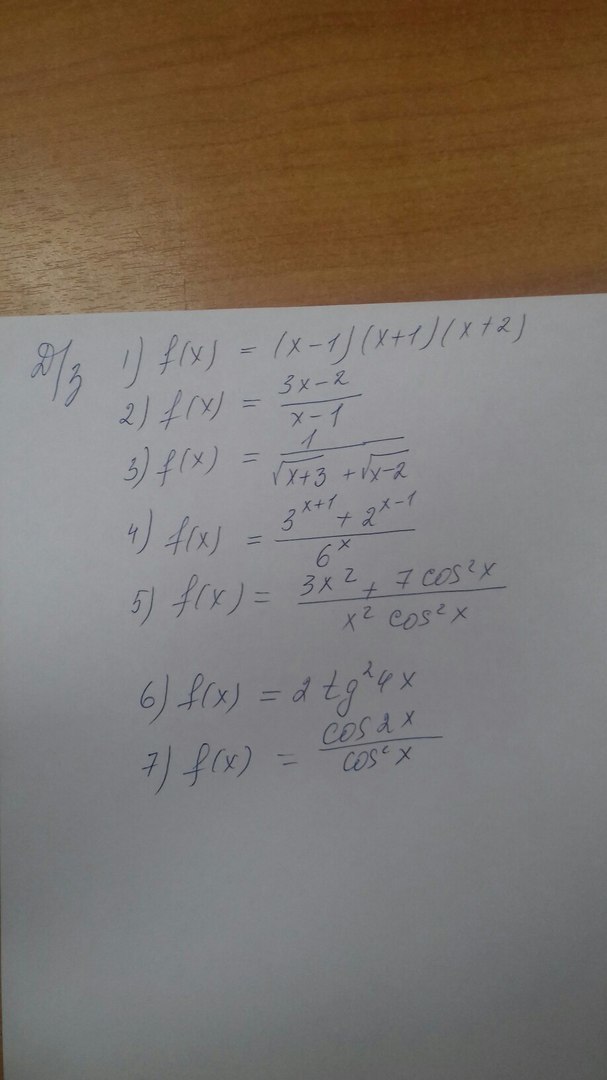 Д/з 1) f(x) = (x-1)(x+1)(x+2)
2) f(x) = (3x-2)/(x-1)
3) f(x) = 1/(√(x+3) + √(x-2))
4) f(x) = (3^(x+1) + 2^(x-1))/6^x
5) f(x) = (3x² + 7cos²x)/(x² cos²x)
6) f(x) = 2 tg²4x
7) f(x) = cos2x/cos²x